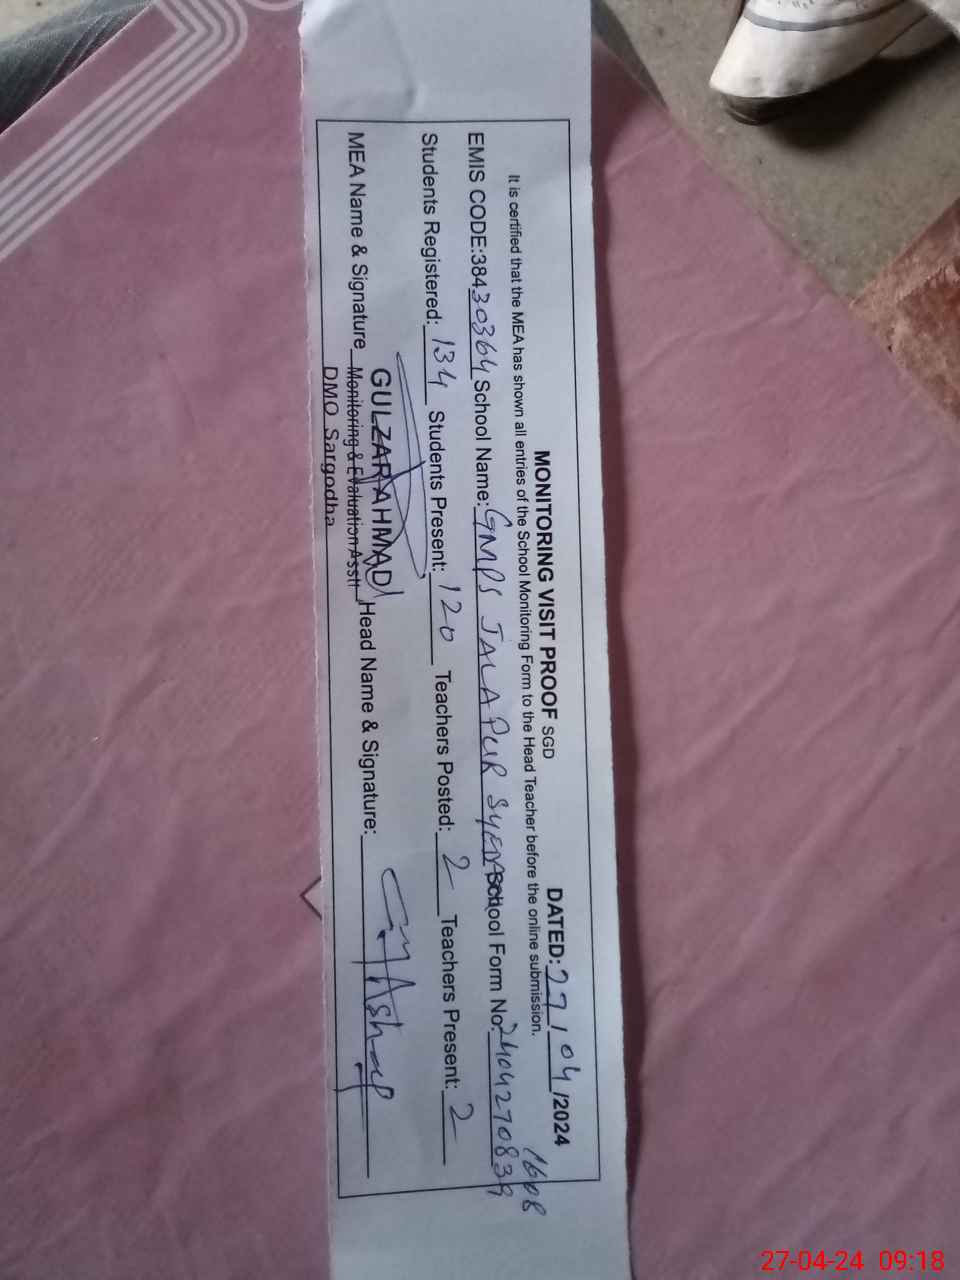 MONITORING VISIT PROOF SGD DATED: 27/04/2024
It is certified that the MEA has shown all entries of the School Monitoring Form to the Head Teacher before the online submission.
EMIS CODE:38430364 School Name: GMPS JALAPUR SYEDA School Form No. 2404270839
Students Registered: 134 Students Present: 120 Teachers Posted: 2 Teachers Present: 2
GULZAR AHMAD
MEA Name & Signature Monitoring & Evaluation Asstt Head Name & Signature: Ashraf
DMO Sargodha
27-04-24 09:18